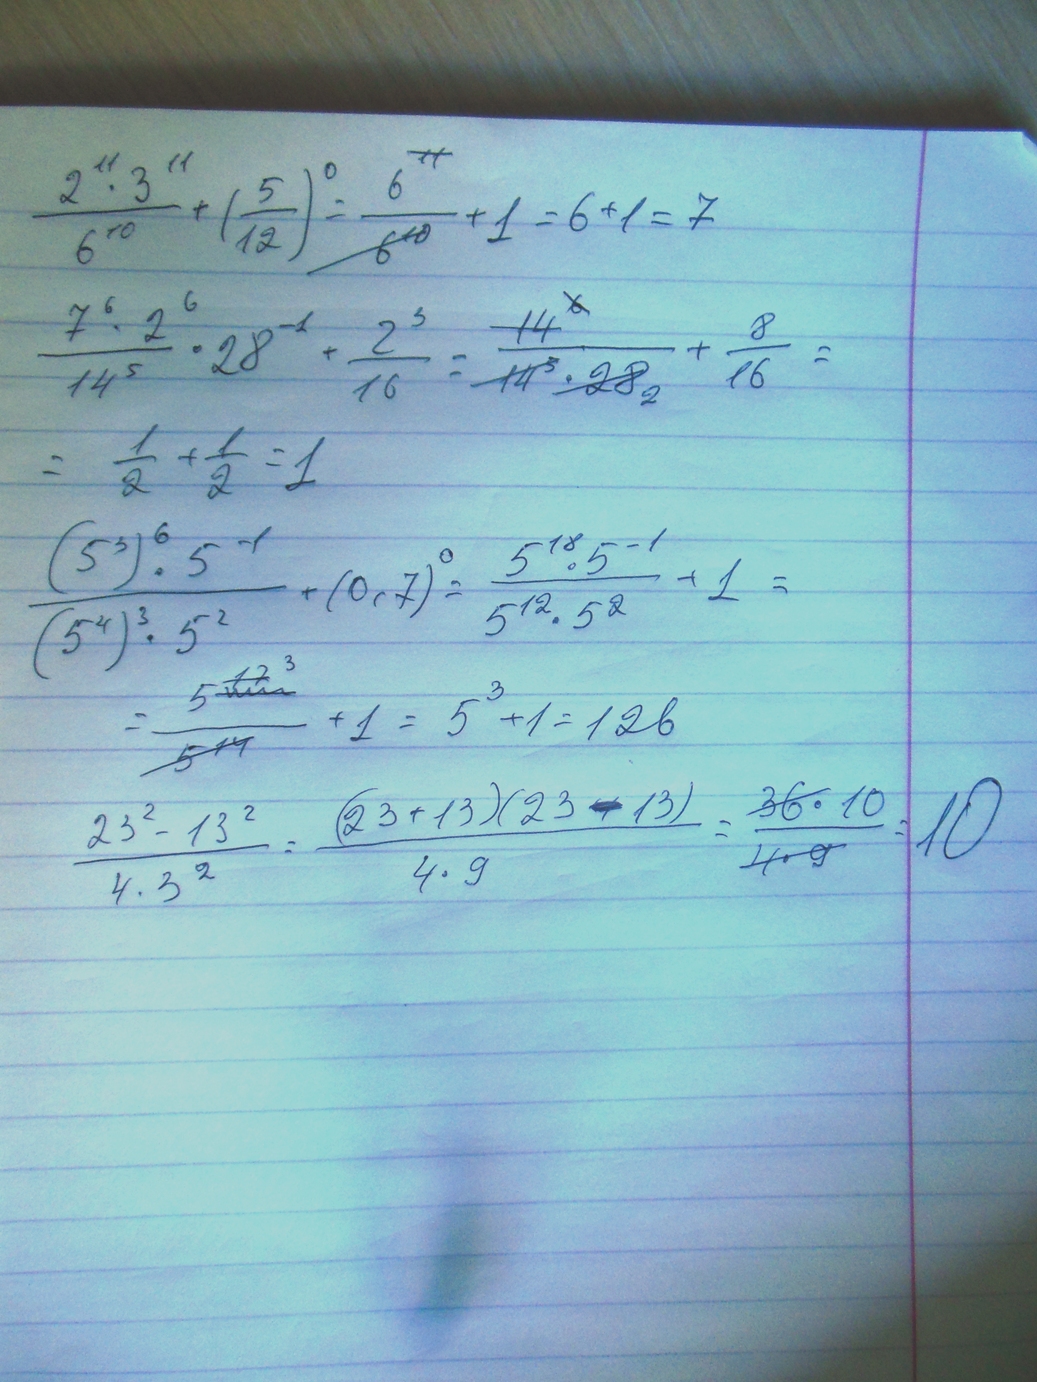 2^11 · 3^11 / 6^10 + (5/12)^0 = 6^11 / 6^10 + 1 = 6 + 1 = 7
7^6 · 2^6 / 14^5 · 28^-1 + 2^3 / 16 = 14^6 / 14^5 · 28 2 + 8/16 =
= 1/2 + 1/2 = 1
(5^3)^6 · 5^-1 / (5^4)^3 · 5^2 + (0,7)^0 = 5^18 · 5^-1 / 5^12 · 5^2 + 1 =
= 5^17 3 / 5^14 + 1 = 5^3 + 1 = 126
23^2 - 13^2 / 4 · 3^2 = (23 + 13)(23 - 13) / 4 · 9 = 36 · 10 / 4 · 9 = 10